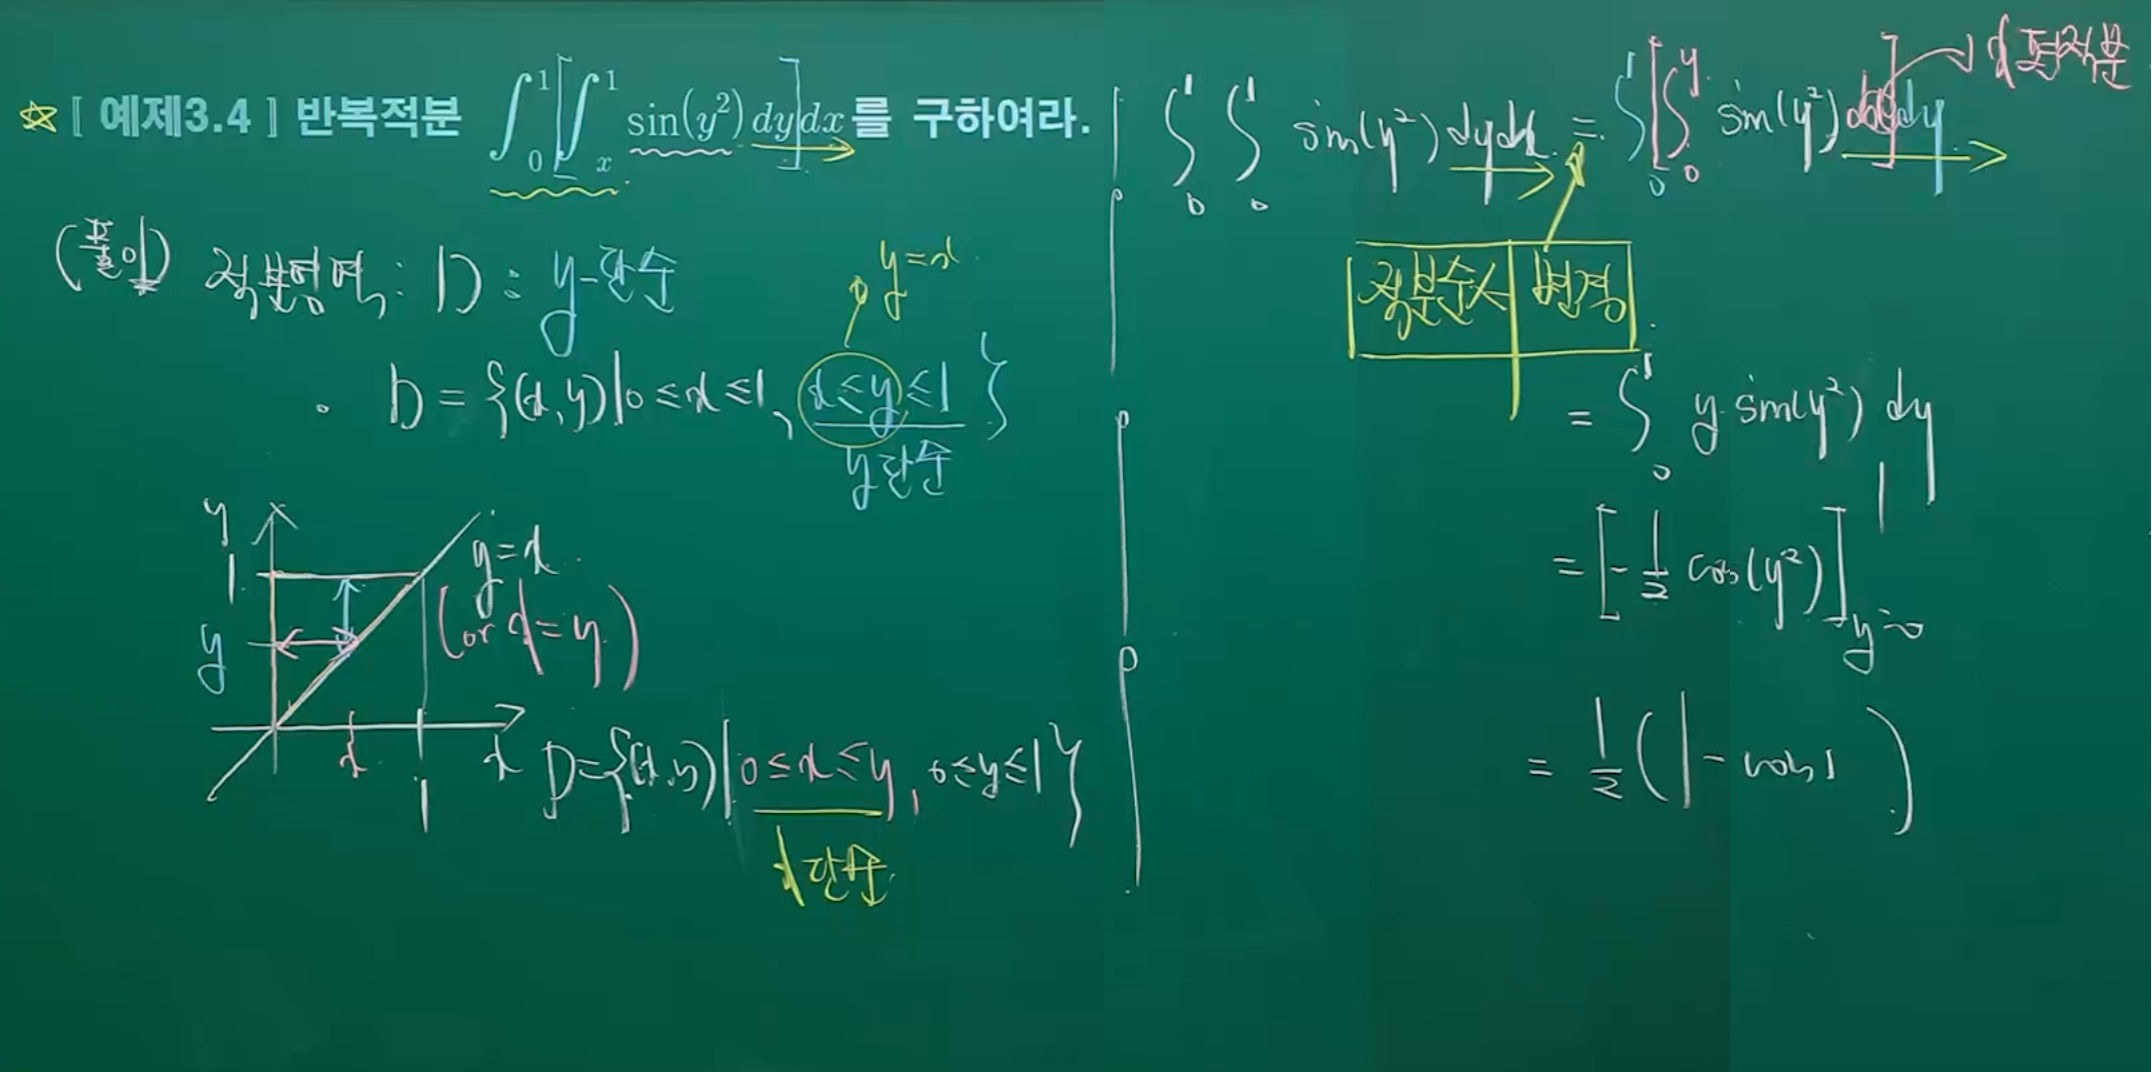 ☆ [ 예제3.4 ] 반복적분 ∫₀¹[∫ₓ¹ sin(y²) dy]dx 를 구하여라.
(풀이) 적분영역 : D : y-단순
y=x
D = {(x,y)|0≤x≤1, x≤y≤1}
y단순
y
1
y=x
(or x=y)
y
x
1
x
D={(x,y)|0≤x≤y, 0≤y≤1}
x단순
∫₀¹∫₀¹ sin(y²) dydx = ∫₀¹[∫₀^y sin(y²) dx]dy
x 편적분
적분순서 변경
= ∫₀¹ y sin(y²) dy
= [-1/2 cos(y²)]_{y=0}^1
= 1/2 (1 - cos1)